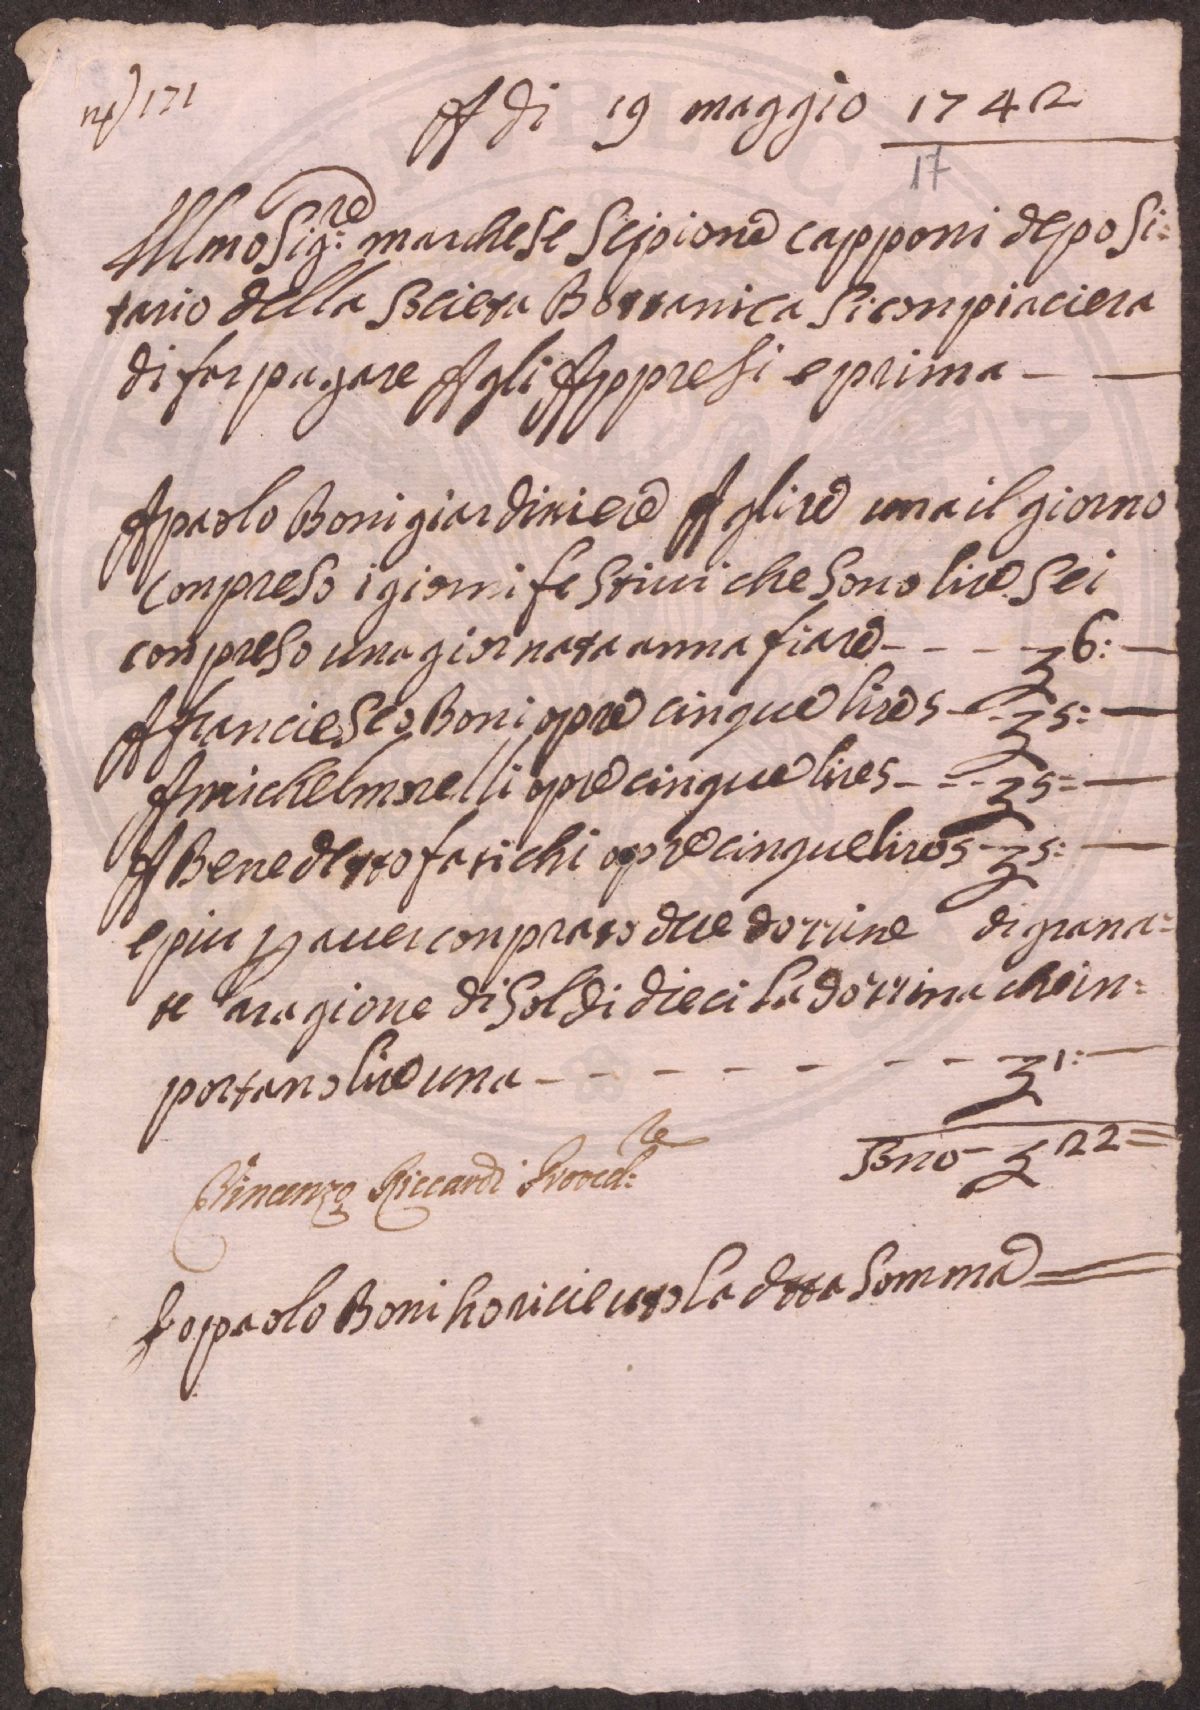 no) 171
A di 19 maggio 1742
17
Illmo Sig:re marchese Scipione capponi deposi:
tario della Societa Bottanica Si conpiaciera
di far pagare Agli Appresi e prima - —
A paolo Boni giardiniere A lire una il giorno
conpreso i giorni festivi che sono lire Sei
conpreso una giornata annafiare - - - - 6: —
A franciesco Boni opre cinque lire 5 - - 5: —
A michel morelli opre cinque lire 5 - = - 5 = —
A Benedetto farichi opre cinque lire 5 - 5: —
e piu p aver conprato due dozzine di grana:
te aragione di Soldi dieci La dozzina che in:
portano lire una - - - - - - - - 1: —
Sono - 22 =
Vincenzo Riccardi Proved:re
Io paolo Boni ho riceuto La detta Somma =